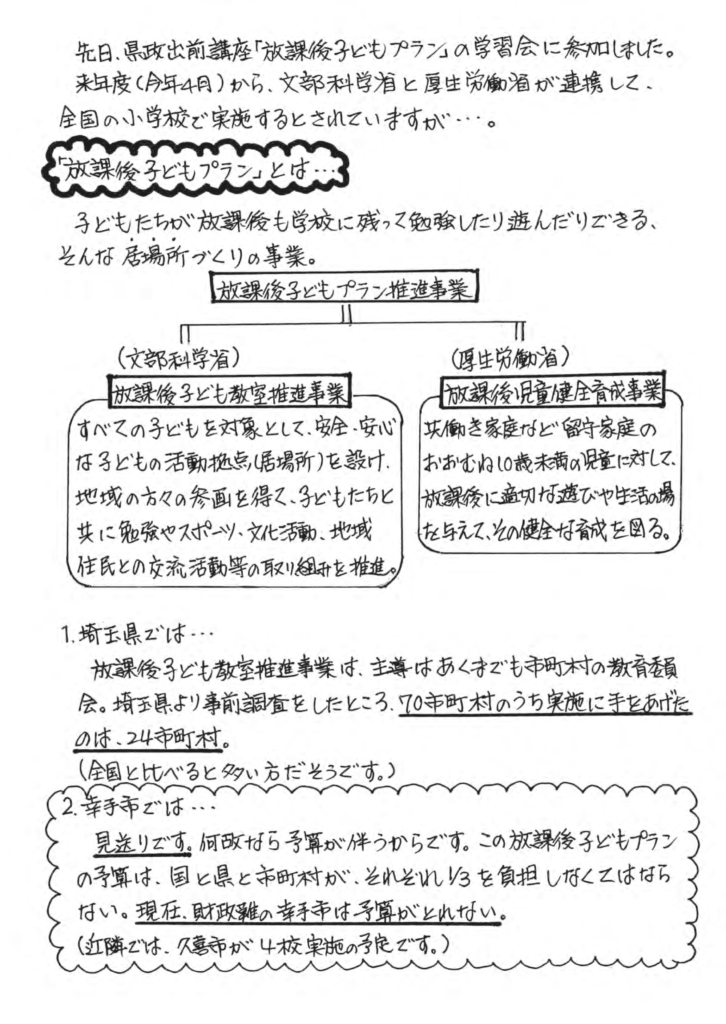 先日、県政出前講座「放課後子どもプラン」の学習会に参加しました。
来年度(今年4月)から、文部科学省と厚生労働省が連携して、
全国の小学校で実施するとされていますが…。
「放課後子どもプラン」とは…
子どもたちが放課後も学校に残って勉強したり遊んだりできる、
そんな居場所づくりの事業。
放課後子どもプラン推進事業
(文部科学省)
放課後子ども教室推進事業
すべての子どもを対象として、安全・安心
な子どもの活動拠点(居場所)を設け、
地域の方々の参画を得て、子どもたちと
共に勉強やスポーツ、文化活動、地域
住民との交流活動等の取り組みを推進。
(厚生労働省)
放課後児童健全育成事業
共働き家庭など留守家庭の
おおむね10歳未満の児童に対して、
放課後に適切な遊びや生活の場
を与えて、その健全な育成を図る。
1.埼玉県では…
放課後子ども教室推進事業は、主導はあくまでも市町村の教育委員
会。埼玉県より事前調査をしたところ、70市町村のうち実施に手をあげた
のは、24市町村。
(全国と比べると多い方だそうです。)
2.幸手市では…
見送りです。何故なら予算が伴うからです。この放課後子どもプラン
の予算は、国と県と市町村が、それぞれ1/3を負担しなくてはなら
ない。現在、財政難の幸手市は予算がとれない。
(近隣では、久喜市が4校実施の予定です。)